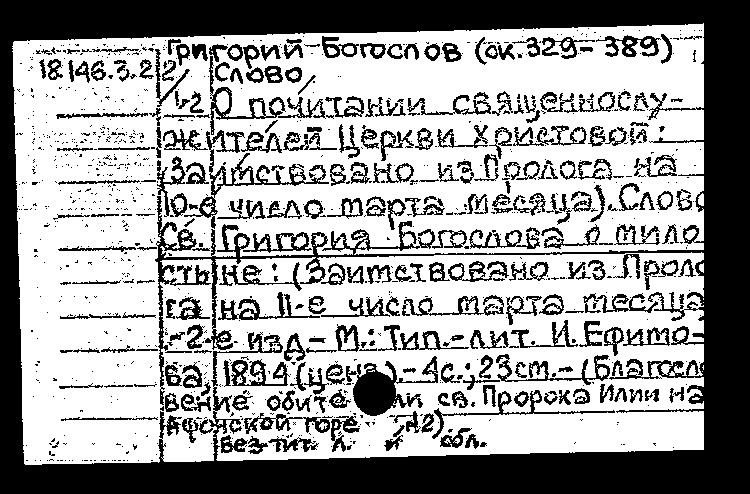 Григорий Богослов (ок. 329-389)
18.146.3.2 2/ Слово
1,2 О почитании священнослу-
жителей Церкви Христовой:
(Заимствовано из Пролога на
10-е число марта месяца). Слово
Св. Григория Богослова о мило
стыне: (Заимствовано из Проло
га на 11-е число марта месяца
.-2-е изд.- М.: Тип.-лит. И. Ефимо-
ва, 1894 (цена).- 4с.; 23см.- (Благосло
вение обители св. Пророка Илии на
Афонской горе ; 12).
Без тит. л. и обл.